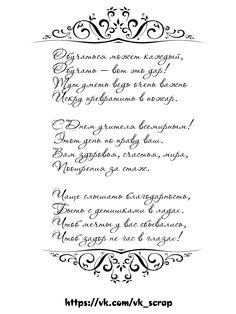 Обучаться может каждый,
Обучать – вот это дар!
Тут уметь ведь очень важно
Искру превратить в пожар.
С Днем учителя всемирным!
Этот день по нраву ваш.
Вам здоровья, счастья, мира,
Поощрения за стаж.
Чаще слышать благодарность,
Быть с детишками в ладах.
Чтоб мечты у вас сбывались,
Чтоб задор не гас в глазах!
https://vk.com/vk_scrap